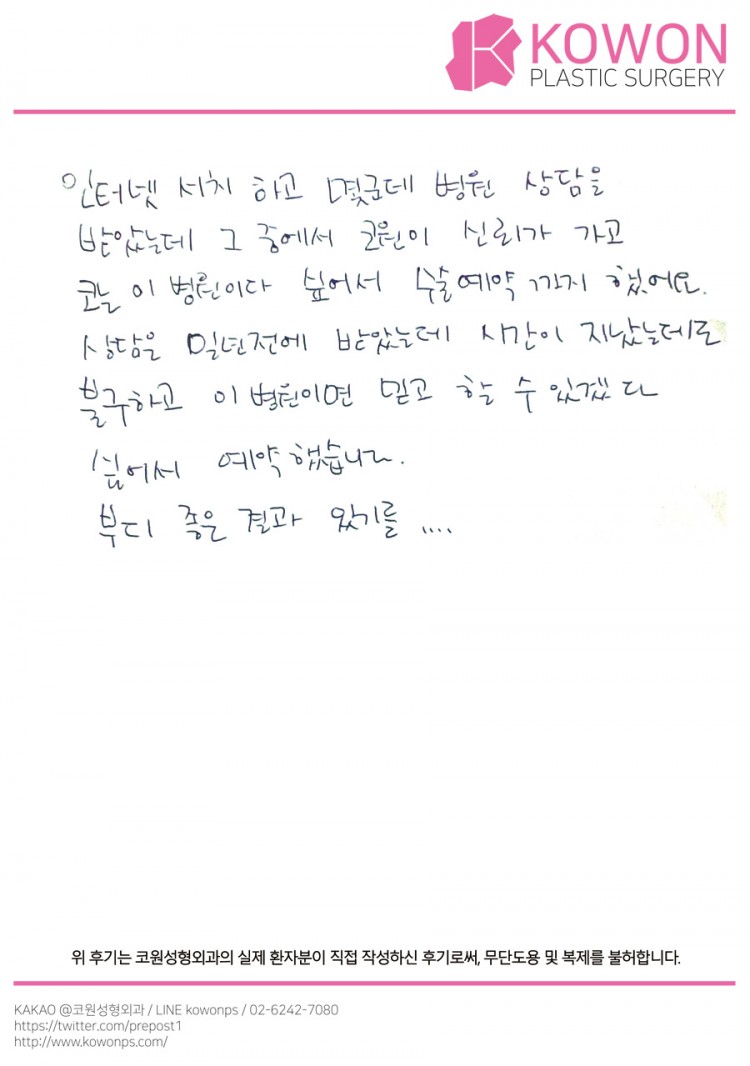 KOWON
PLASTIC SURGERY
인터넷 서치 하고 몇군데 병원 상담을
받았는데 그 중에서 코원이 신뢰가 가고
오늘 이 병원이다 싶어서 수술예약 까지 했어요.
상담은 일년전에 받았는데 시간이 지났는데도
불구하고 이 병원이면 믿고 할 수 있겠다
싶어서 예약했습니다.
부디 좋은 결과 있기를 ....
위 후기는 코원성형외과의 실제 환자분이 직접 작성하신 후기로써, 무단도용 및 복제를 불허합니다.
KAKAO @코원성형외과 / LINE kowonps / 02-6242-7080
https://twitter.com/prepost1
http://www.kowonps.com/